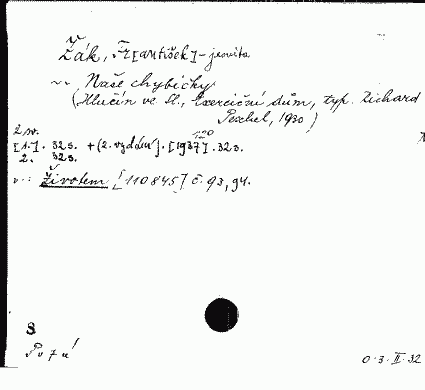 Žák, Fr[antišek] - jesuita
Naše chybičky
(Hlučín ve Sl., Exerciční dům, typ. Richard
Peschel, 1930)
2 sv.
[1.]. 32 s. + (2. vydání]. [1937]. 32 s.
2. 32 s.
v: Životem [110845] č. 93, 94.
8
0.3.II.32